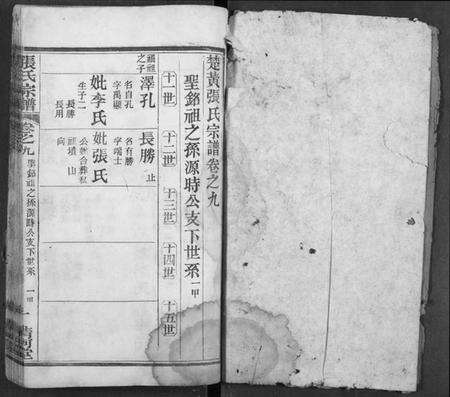 楚黃張氏宗譜卷之九
聖銘祖之孫源時公支下世系 一甲
十一世
十二世
十三世
十四世
十五世
福祖
之子
澤孔
名自孔
字萬顯
妣李氏
生子二
長勝
長用
長勝 止
名有勝
字鳴士
妣張氏
公妣合葬私
祖墳山
向
張氏宗譜
卷之九
聖銘祖之孫源時公支下世系 一甲
一
清河堂